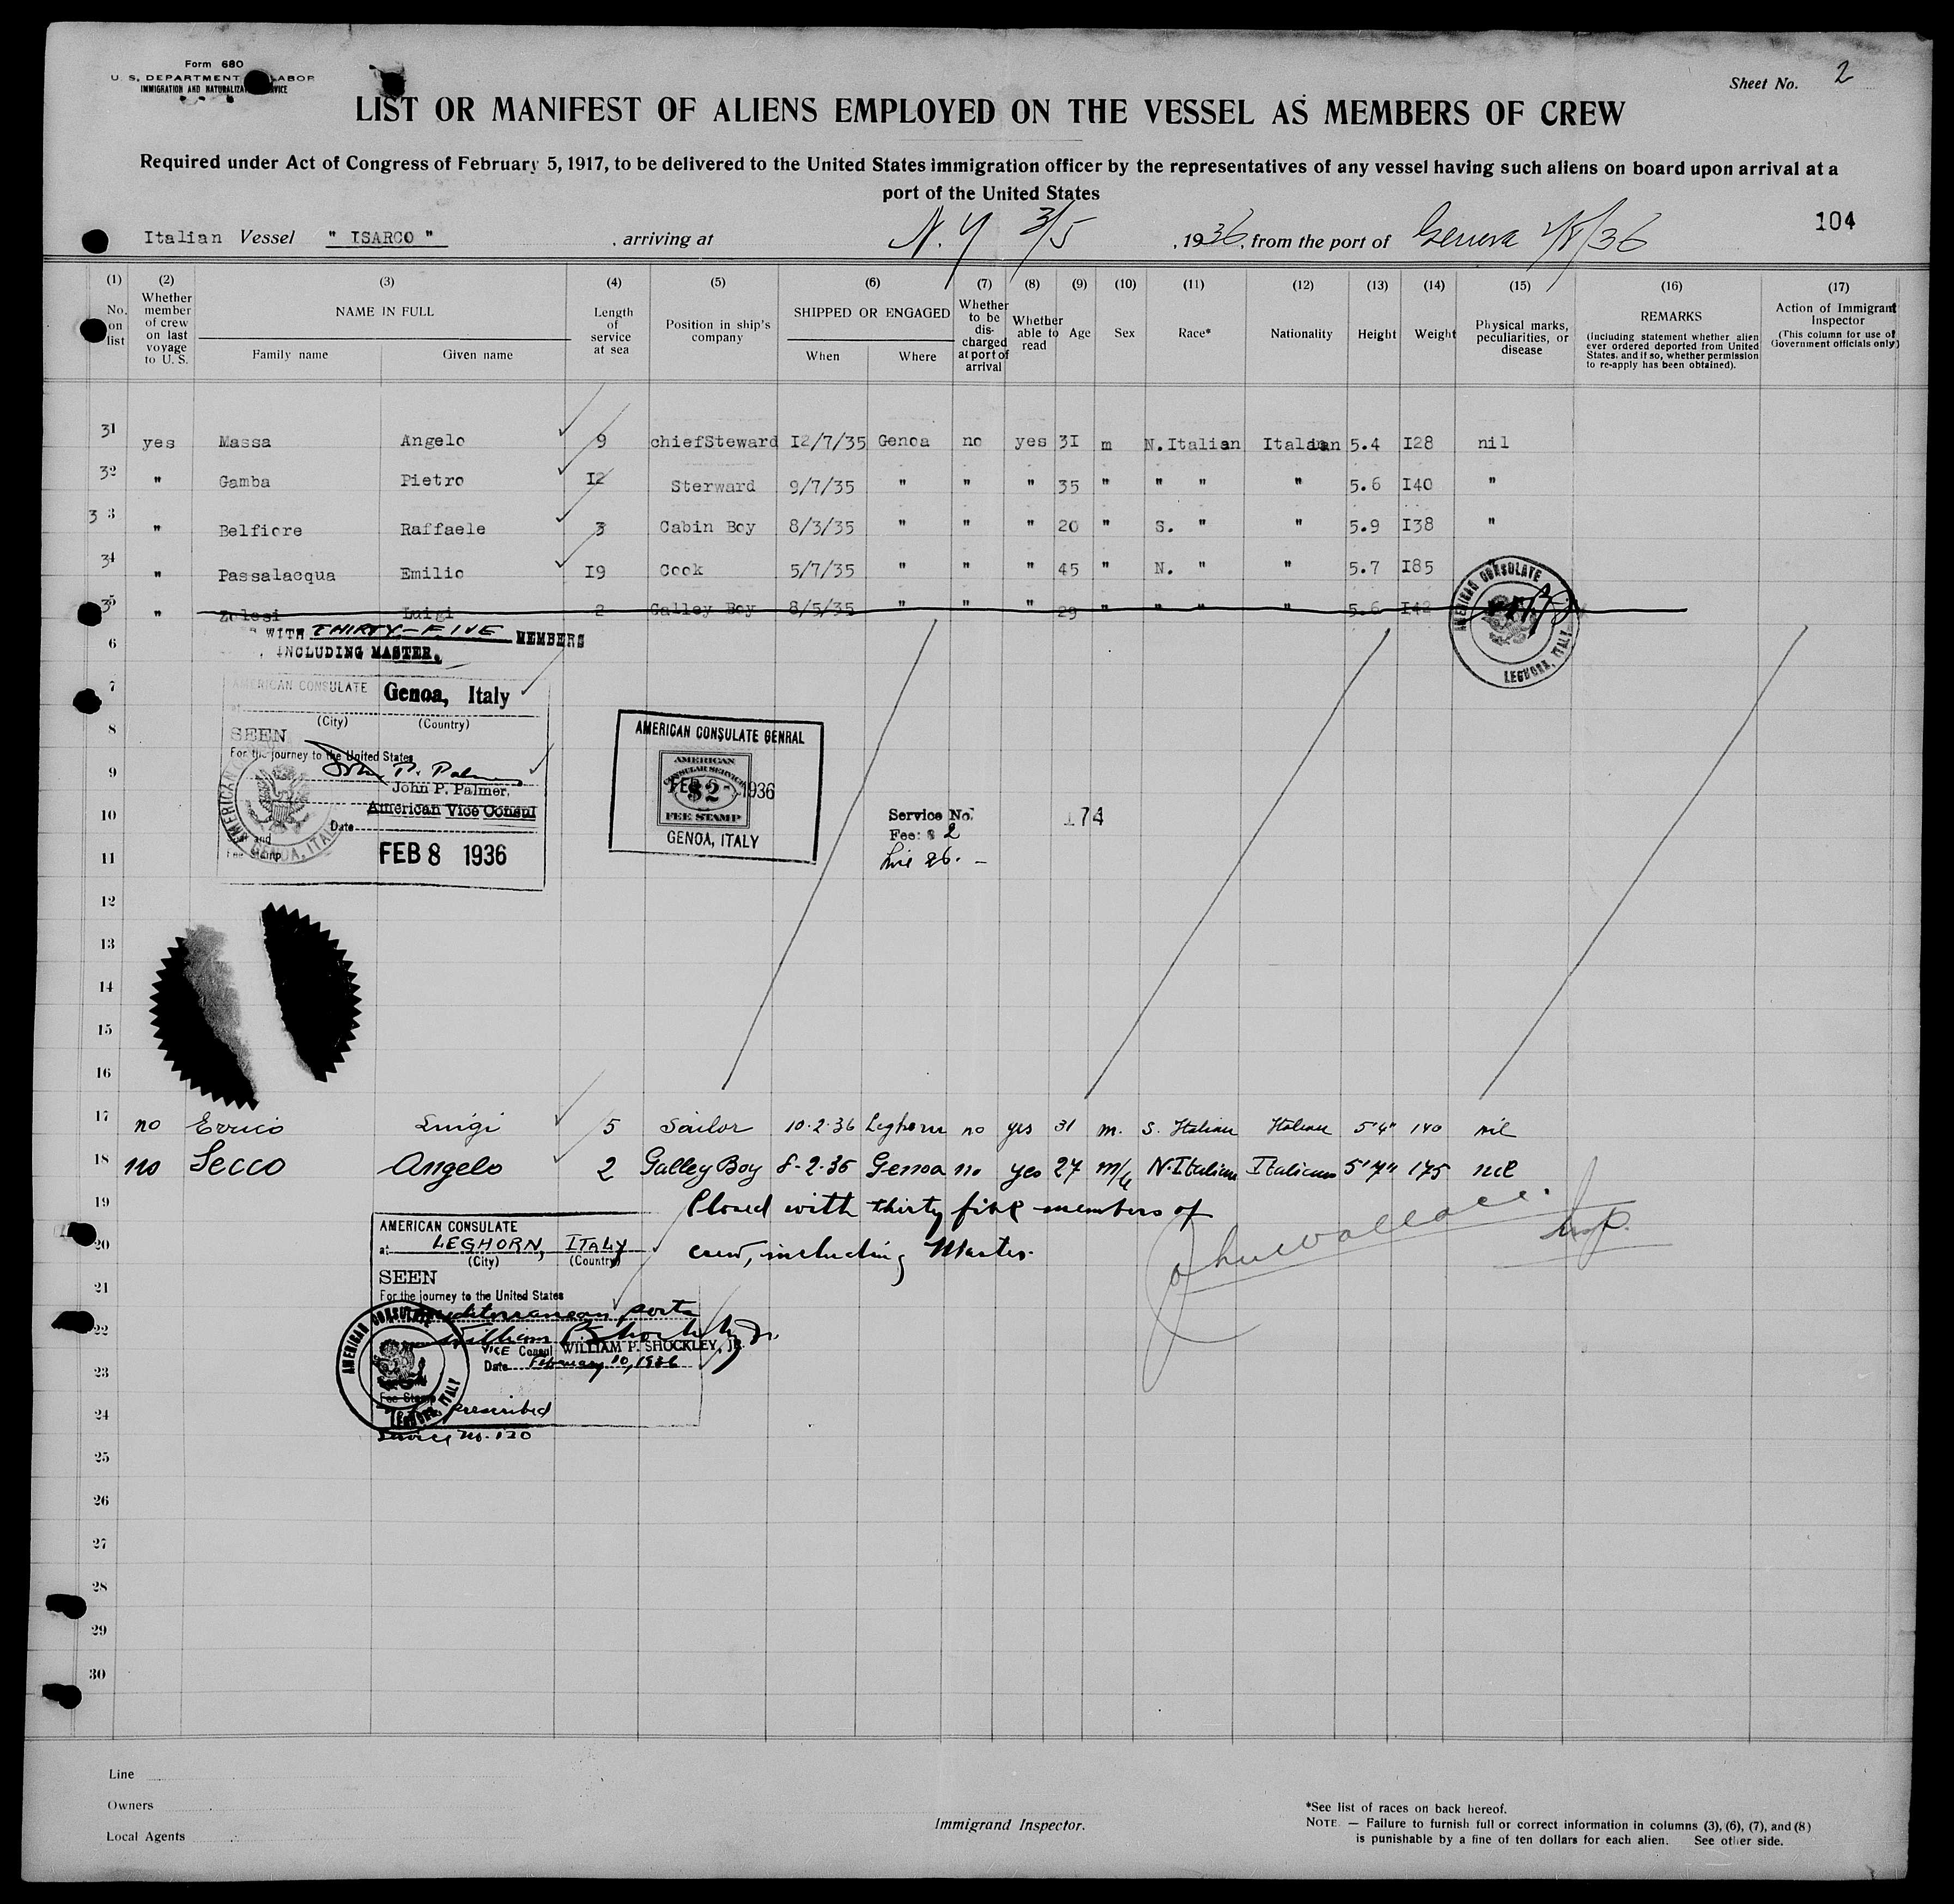 Form 680
U. S. DEPARTMENT LABOR
IMMIGRATION AND
Sheet No. 2
LIST OR MANIFEST OF ALIENS EMPLOYED ON THE VESSEL AS MEMBERS OF CREW
Required under Act of Congress of February 5, 1917, to be delivered to the United States immigration officer by the representatives of any vessel having such aliens on board upon arrival at a
port of the United States
104
Italian Vessel " ISARCO " , arriving at N.Y 3/5 , 1936, from the port of Genova /36
(1) (2) (3) (4) (5) (6) (7) (8) (9) (10) (11) (12) (13) (14) (15) (16) (17)
No. on list
Whether member of crew on last voyage to U. S.
NAME IN FULL
Family name Given name
Length of service at sea
Position in ship's company
SHIPPED OR ENGAGED
When Where
Whether to be discharged at port of arrival
Whether able to read
Age
Sex
Race*
Nationality
Height
Weight
Physical marks, peculiarities, or disease
REMARKS
(Including statement whether alien ever ordered deported from United States, and if so, whether permission to re-apply has been obtained).
Action of Immigrant Inspector
(This column for use of Government officials only)
31 yes Massa Angelo 9 chiefSteward I2/7/35 Genoa no yes 3I m N.Italian Italian 5.4 I28 nil
32 " Gamba Pietro I2 Sterward 9/7/35 " " " 35 " " " " 5.6 I40 "
33 " Belfiore Raffaele 3 Cabin Boy 8/3/35 " " " 20 " S. " " 5.9 I38 "
34 " Passalacqua Emilio I9 Cook 5/7/35 " " " 45 " N. " " 5.7 I85
35 " Zolesi Luigi 2 Galley Boy 8/5/35 " " " 29 " " " " 5.6 I42
AMERICAN CONSULATE
LEGHORN, ITALY
WITH THIRTY-FIVE MEMBERS
6
INCLUDING MASTER.
7
AMERICAN CONSULATE Genoa, Italy
(City) (Country)
8
SEEN
For the journey to the United States
9
John P. Palmer
John P. Palmer,
10
American Vice Consul
Date
11
FEB 8 1936
Fee Stamp
AMERICAN
GENOA, ITALY
AMERICAN CONSULATE GENRAL
AMERICAN
CONSULAR SERVICE
FEB 1936
$2
FEE STAMP
GENOA, ITALY
Service No. 174
Fee: $ 2
Lire 26. –
12
13
14
15
16
17 no Errico Luigi 5 Sailor 10-2-36 Leghorn no yes 31 m. S. Italian Italian 5'4" 140 nil
18 no Secco Angelo 2 Galley Boy 8-2-36 Genoa no yes 27 m N.Italian Italian 5'7" 175 nil
19
Closed with thirty five members of
crew, including Master.
Insp.
AMERICAN CONSULATE
at LEGHORN, ITALY
20
(City) (Country)
SEEN
21
For the journey to the United States
Mediterranean ports
22
William P. Shockley Jr.
VICE Consul WILLIAM P. SHOCKLEY, JR.
Date February 10, 1936
23
Fee Stamp
24
prescribed
Service No. 120
AMERICAN CONSULATE
LEGHORN, ITALY
25
26
27
28
29
30
Line
Owners
Local Agents
Immigrand Inspector.
*See list of races on back hereof.
NOTE. — Failure to furnish full or correct information in columns (3), (6), (7), and (8)
is punishable by a fine of ten dollars for each alien. See other side.